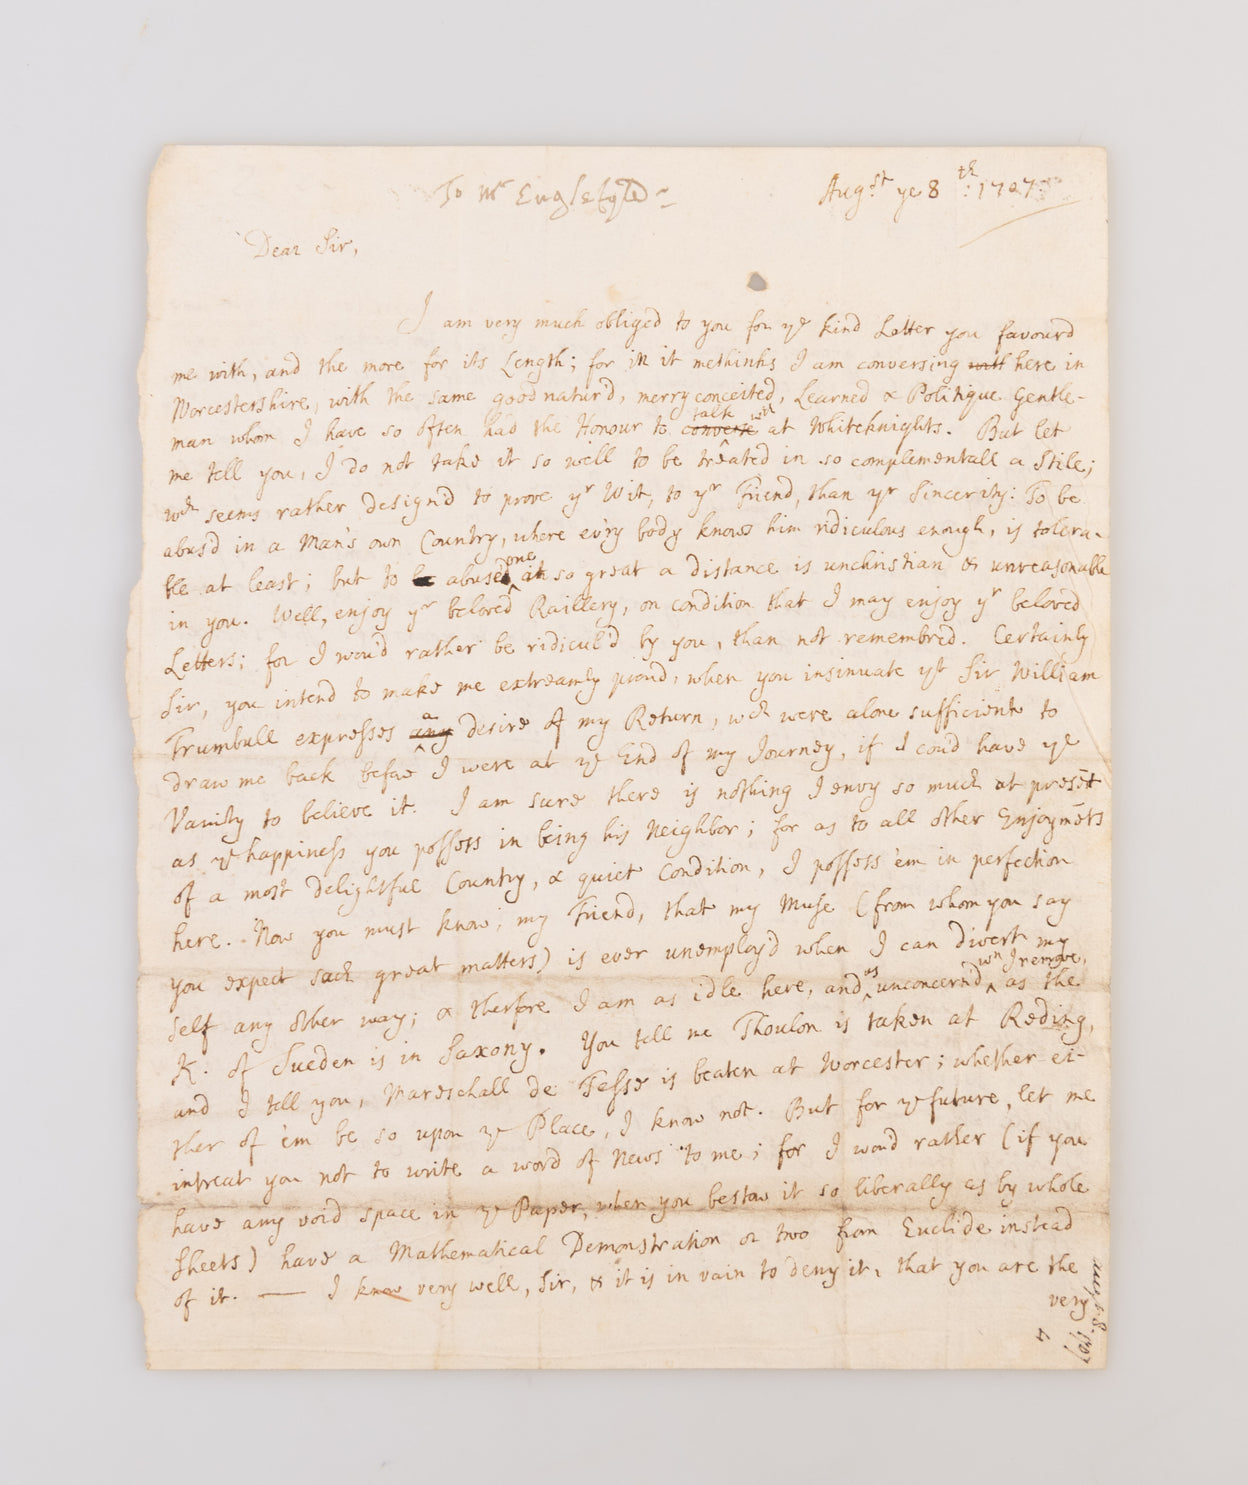 To Mr Englefyld
Augst. ye 8th: 1707
Dear Sir,
I am very much obliged to you for ye kind Letter you favourd
me with, and the more for its Length; for in it methinks I am conversing with here in
Worcestershire, with the same good naturd, merry conceited, Learned & Politique Gentle-
talk wth
man whom I have so often had the Honour to converse at Whiteknights. But let
me tell you, I do not take it so well to be treated in so complementall a Stile;
wch seems rather design'd to prove yr Wit, to yr Friend, than yr Sincerity: To be
abus'd in a Man's own Country, where ev'ry body knows him ridiculous enough, is tolera-
one
ble at least; but to be abuse at so great a distance is unchristian & unreasonable
in you. Well, enjoy yr beloved Raillery, on condition that I may enjoy yr beloved
Letters; for I wou'd rather be ridicul'd by you, than not remembred. Certainly
Sir, you intend to make me extreamly proud, when you insinuate yt Sir William
a
Trumbull expresses any desire of my Return, wch were alone sufficient to
draw me back before I were at ye End of my Journey, if I cou'd have ye
Vanity to believe it. I am sure there is nothing I envy so much at presēt
as ye happiness you possess in being his Neighbor; for as to all other Enjoymēts
of a most delightful Country, & quiet Condition, I possess 'em in perfection
here. Now you must know, my Friend, that my Muse (from whom you say
you expect such great matters) is ever unemploy'd when I can divert my
as wn I remove,
self any other way; & therfore I am as idle here, and unconcern'd as the
K. of Sueden is in Saxony. You tell me Thoulon is taken at Reding,
and I tell you, Mareschall de Tesse is beaten at Worcester; whether ei-
ther of 'em be so upon ye Place, I know not. But for ye future, let me
intreat you not to write a word of News to me; for I wou'd rather (if you
have any void space in ye Paper, when you bestow it so liberally as by whole
Sheets) have a Mathematical Demonstration or two from Euclide instead
of it. — I know very well, Sir, & it is in vain to deny it, that you are the
very